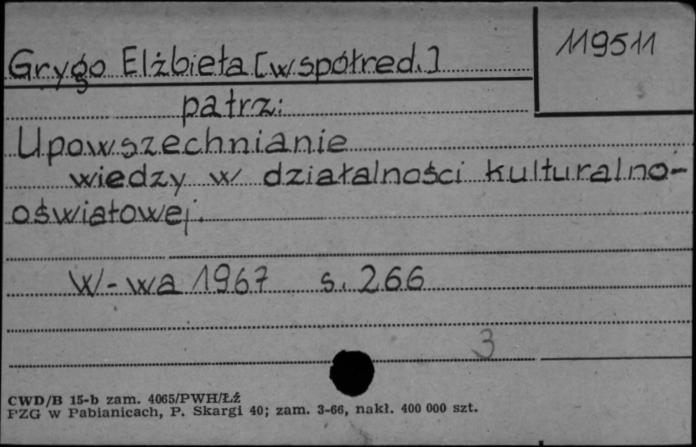 119511
Grygo Elżbieta [współred.]
patrz:
Upowszechnianie
wiedzy w działalności kulturalno-
oświatowej.
W-wa 1967 s. 266
3
CWD/B 15-b zam. 4065/PWH/Łź
PZG w Pabianicach, P. Skargi 40; zam. 3-66, nakł. 400 000 szt.